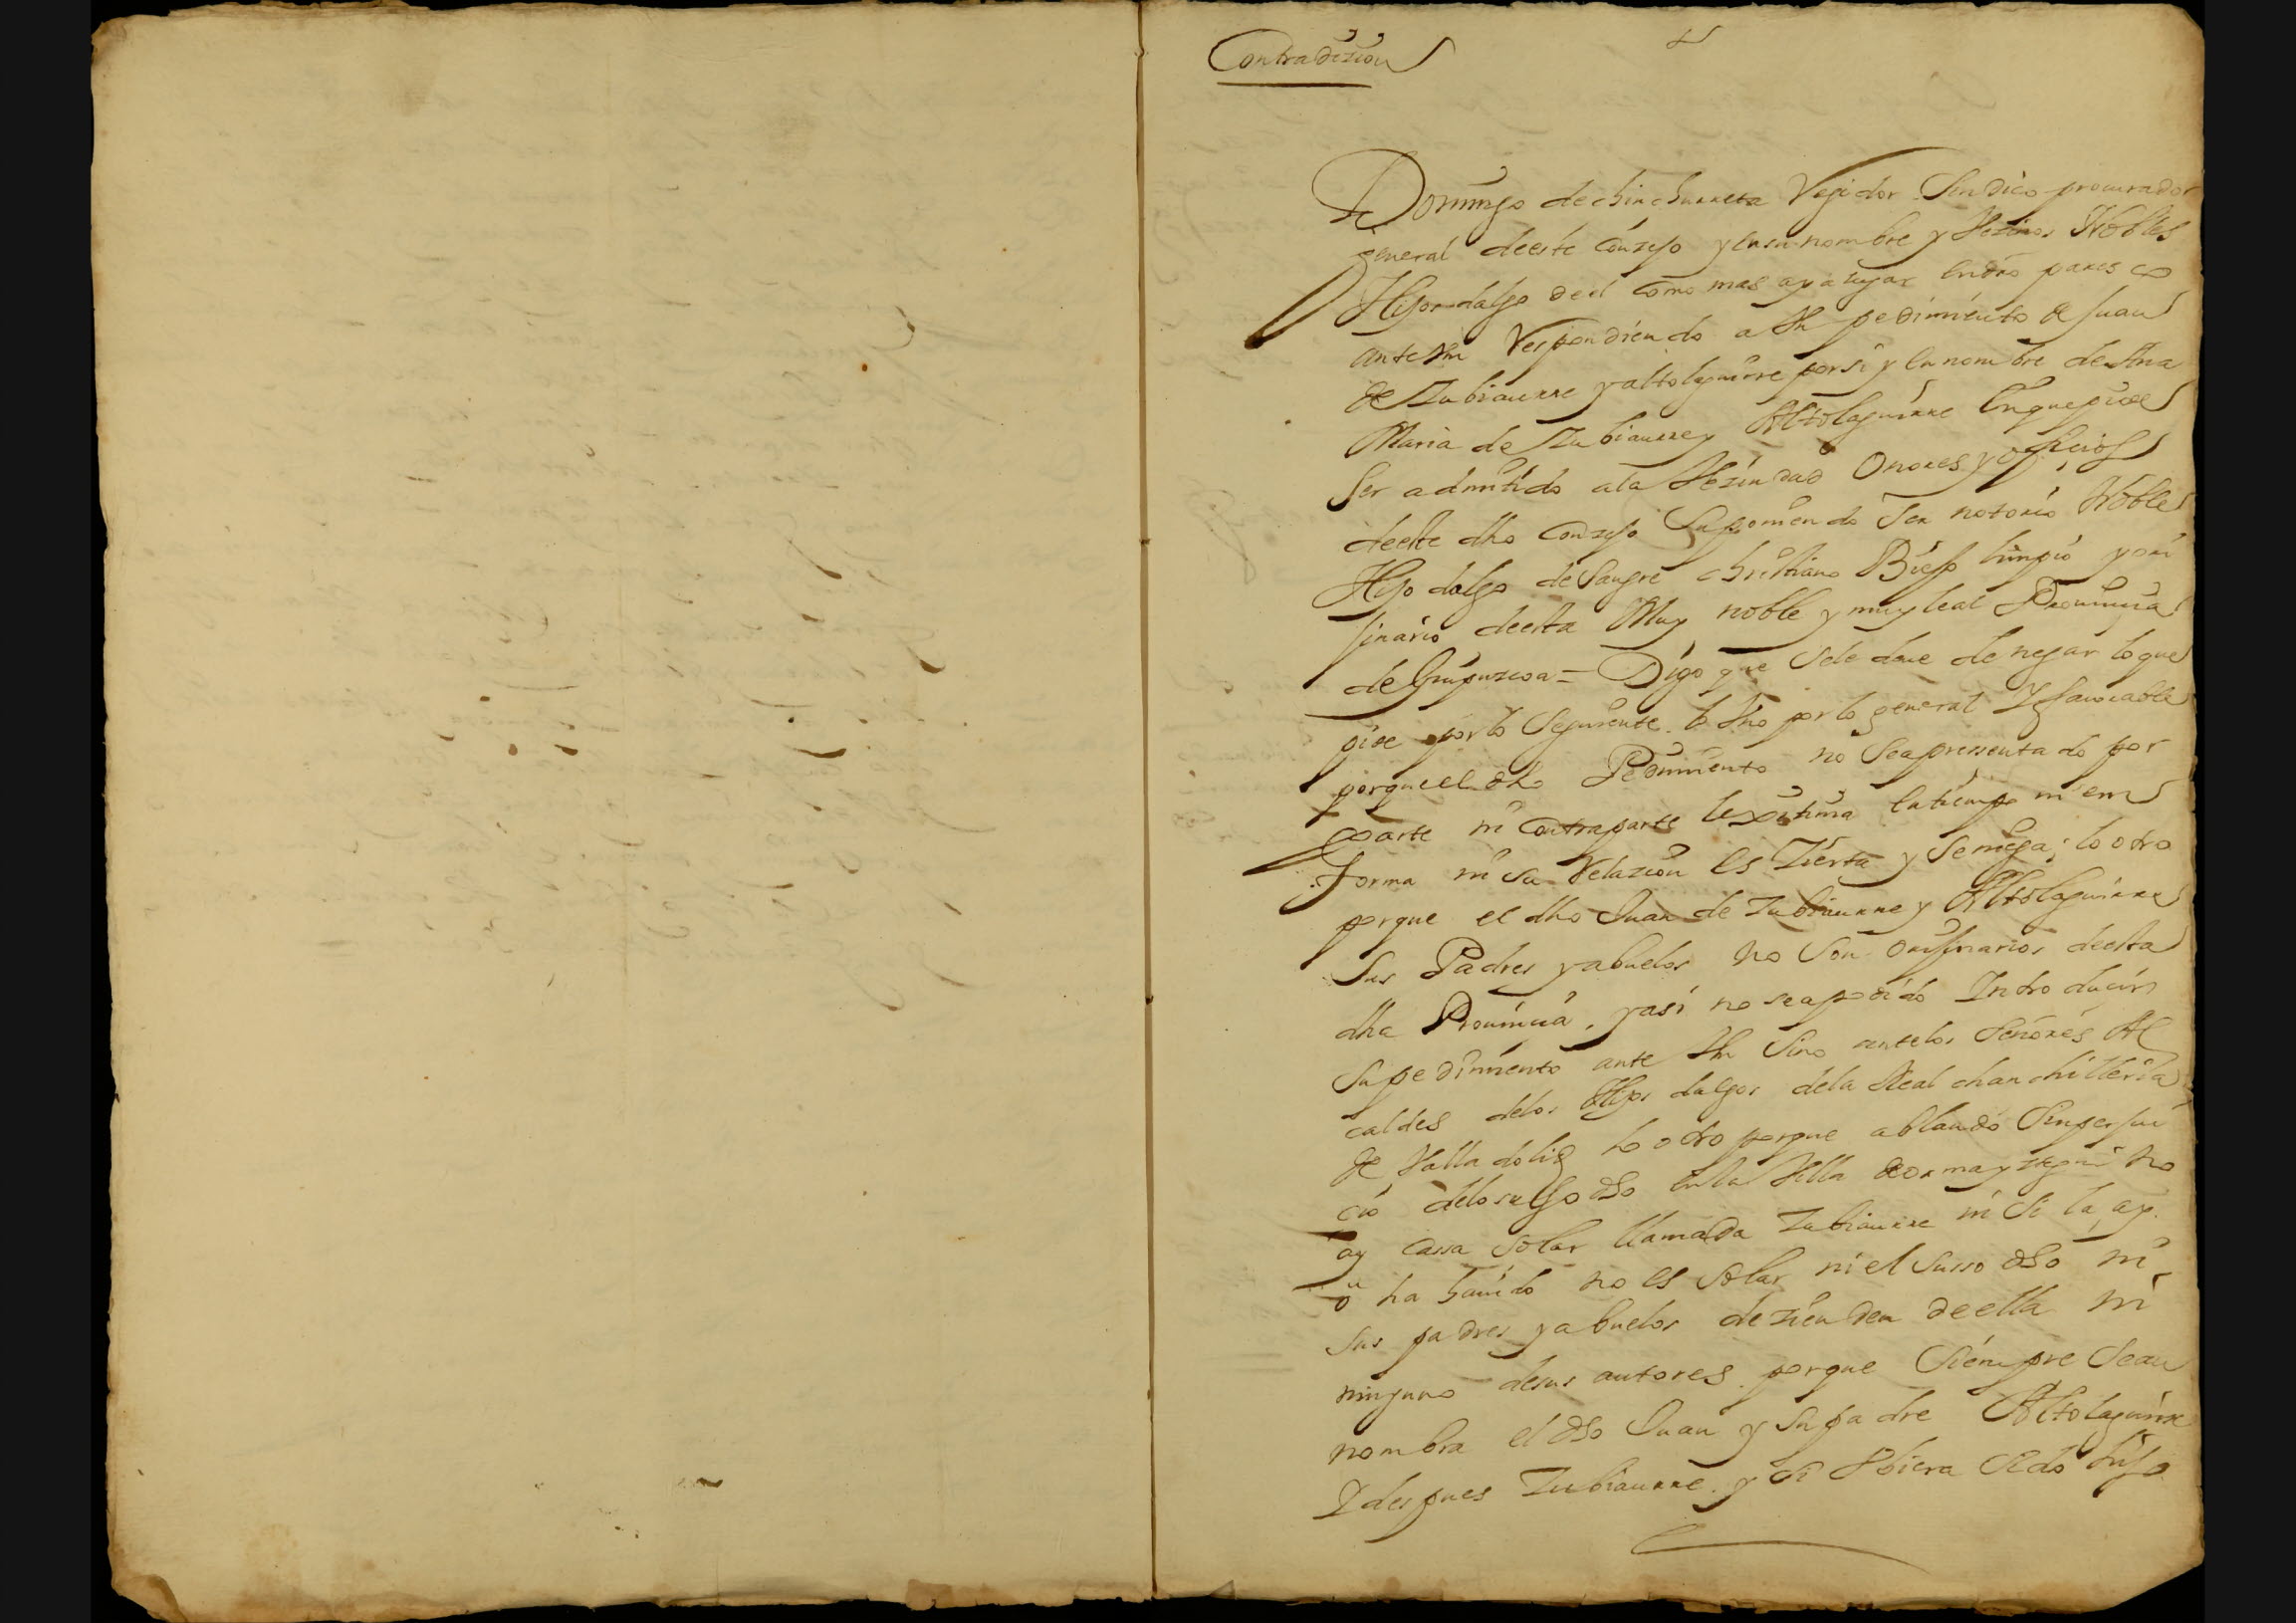 Contradizion
Domingo de chinchurreta Regidor Sindico procurador
general deeste Conzejo y en su nombre y Vezinos Nobles
Hijosdalgo de el como mas aya lugar en dro paresco
ante Vm Respondiendo a Un pedimiento de Juan
de Zubiaurre y altolaguirre por si y en nombre de Ana
Maria de Zubiaurre y Altolaguirre en que pide
Ser admitido a la Vezindad Onores y oficios
deeste dho Conzejo Suponiendo Ser notorio Noble
Hijo dalgo de Sangre christiano Biejo limpio y ori
jinario deesta Muy noble y muy leal Prouinçia
de Guipuzcoa = Digo que Se le deue de negar lo que
pide por lo Seguiente. lo Uno por lo general Y fauorable
porque el dho Pedimiento no Sea pressentado por
parte ni Contraparte lexitima en tiempo ni en
forma ni su Relazion es Zierta y Se niega; lo otro
porque el dho Juan de Zubiaurre y Altolaguirre
Sus Padres y abuelos no Son orijinarios deesta
dha Prouincia, y asi no se a podido Introducir
Su pedimiento ante Vm Sino ante los Señores Al
caldes de los Hijos dalgos de la Real chanchilleria
de Valladolid lo otro porque ablando Sin perjui
cio de lo susso dho en la Villa de ormayztegui no
ay Cassa Solar llamada Zubiaurre ni Si la ay
o ha hauido no es Solar ni el Susso dho ni
Sus padres y abuelos deszienden de ella ni
ninguno de sus autores. porque Siempre Se an
nombra el dho Juan y Su padre Altolaguirre
Y despues Zubiaurre. y Si Vbiera Sido hijo